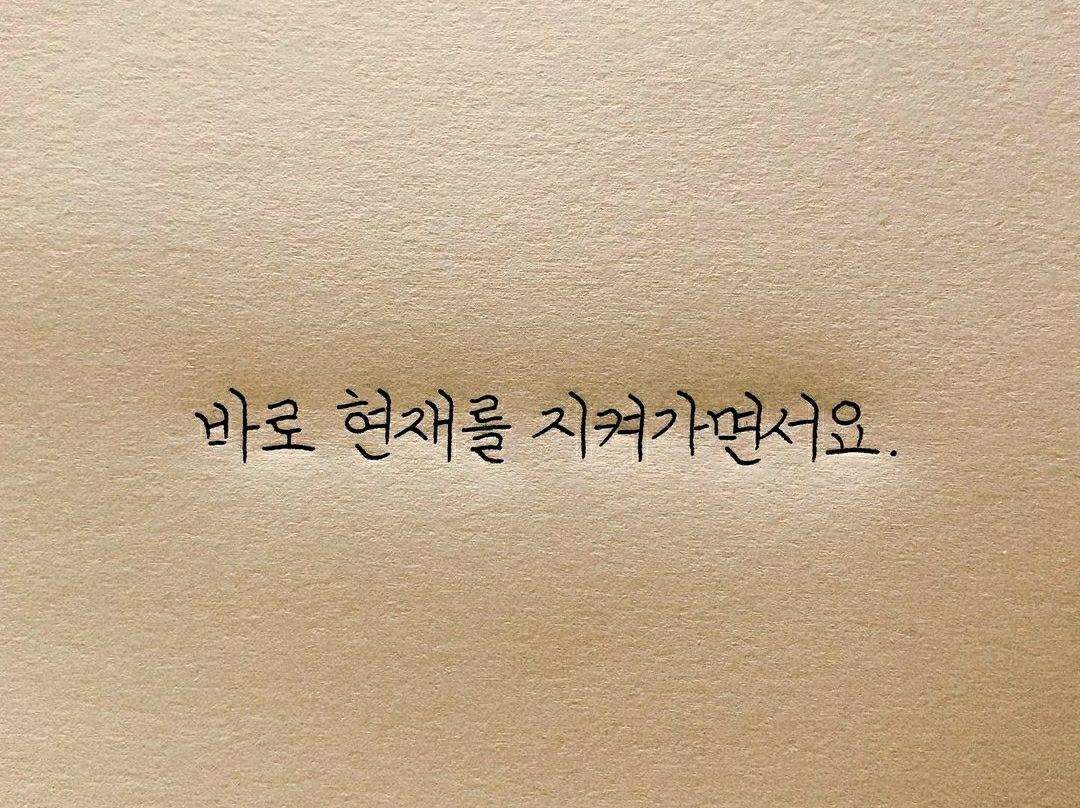 바로 현재를 지켜가면서요.